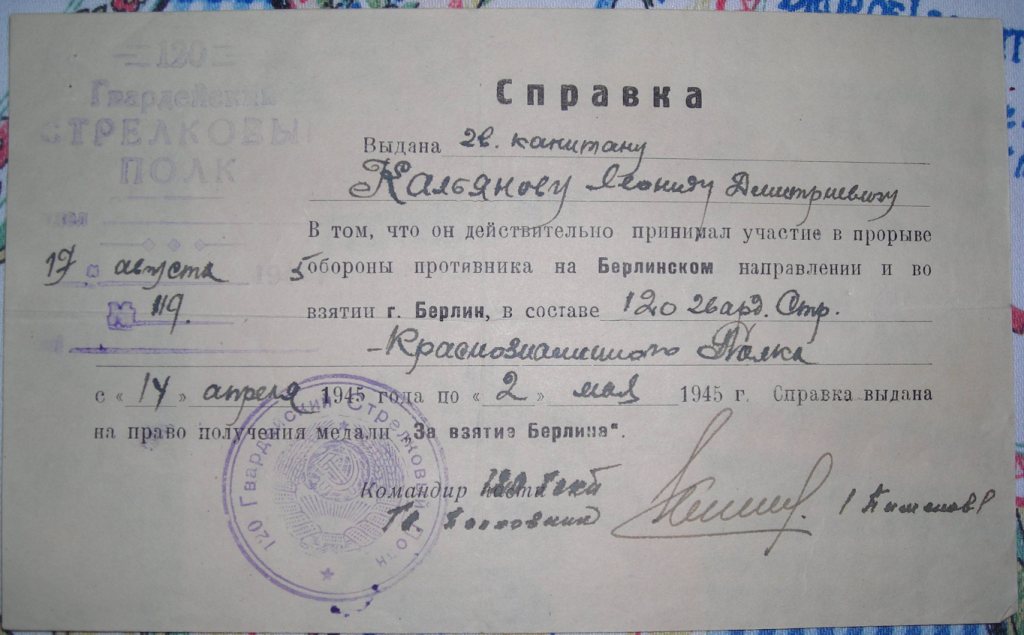 =120=
Гвардейский
СТРЕЛКОВЫ
ПОЛК
17 августа 1945
№ 119.
Справка
Выдана гв. капитану
Кальянову Леониду Дмитриевичу
В том, что он действительно принимал участие в прорыве
обороны противника на Берлинском направлении и во
взятии г. Берлин, в составе 120 гвард. Стр.
-Краснознаменного Полка
с « 14 » апреля 1945 года по « 2 » мая 1945 г. Справка выдана
на право получения медали „За взятиэ Берлина“.
Командир части 120 Гв. Полковник / Пименов /
120 Гвардейский Стрелковый Полк